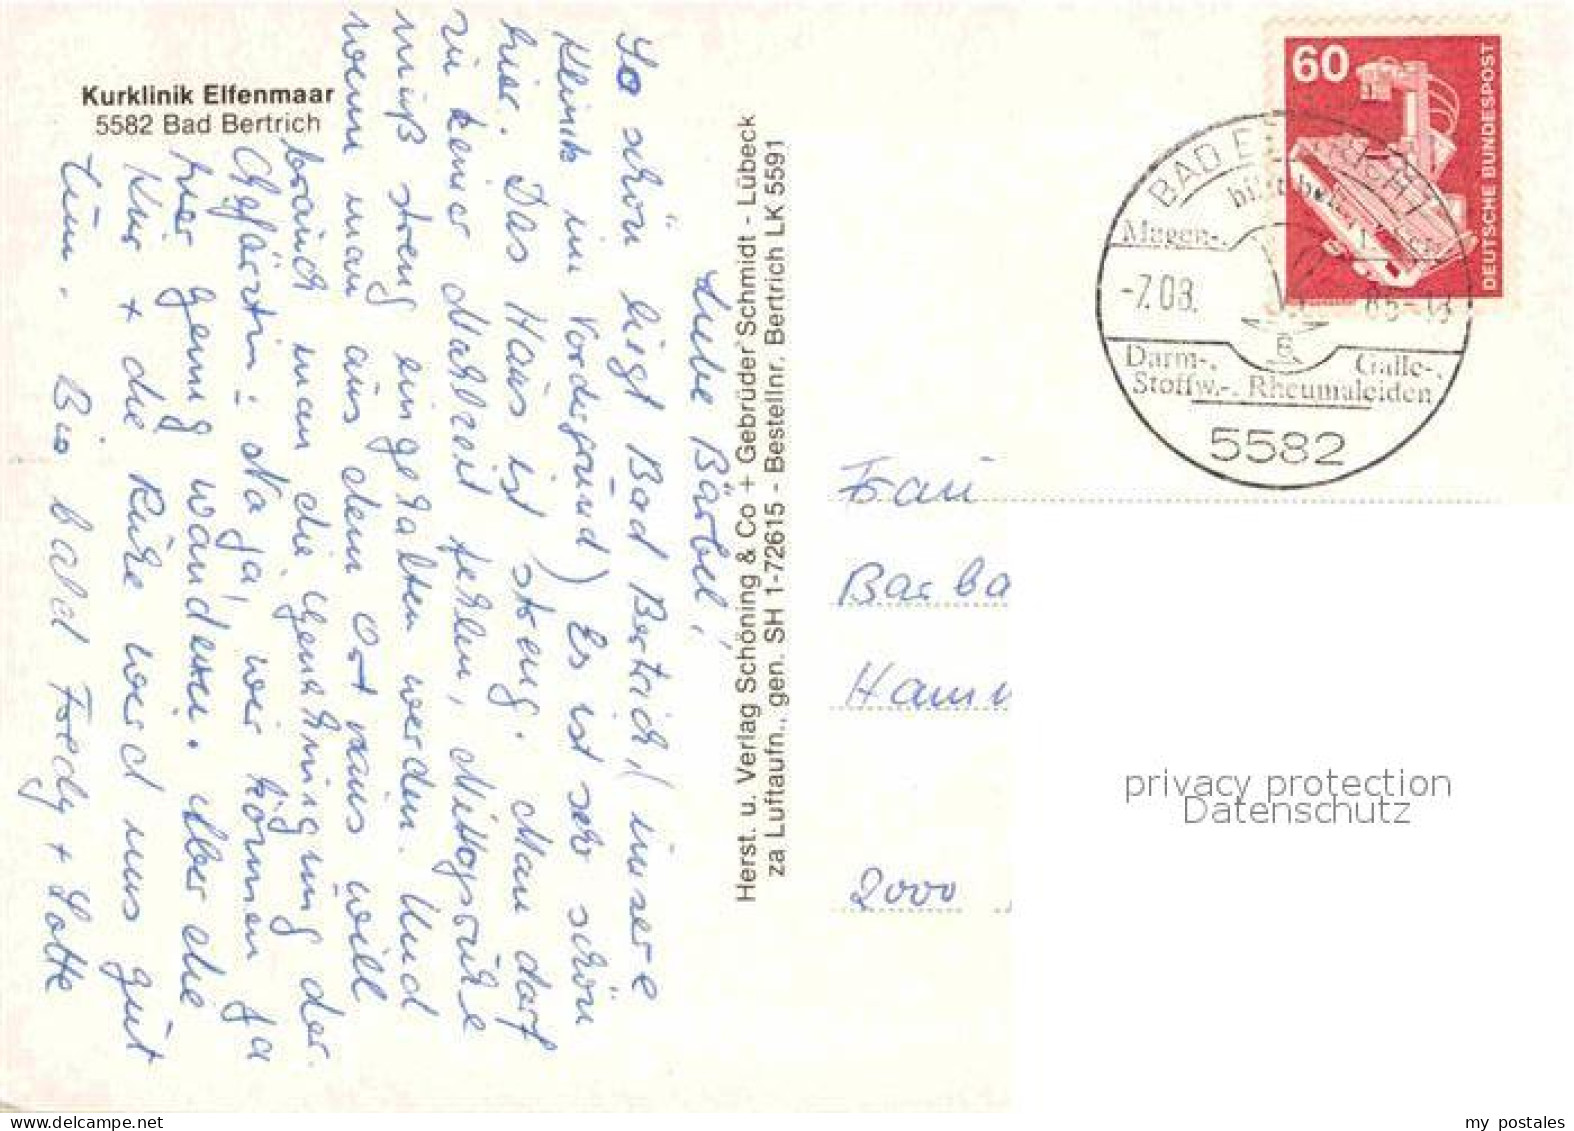 Kurklinik Elfenmaar
5582 Bad Bertrich
Liebe Bärbel!
So schön liegt Bad Bertrich, (unsere
Klinik im Vordergrund) Es ist sehr schön
hier. Das Haus ist streng. Man darf
zu keiner Mahlzeit fehlen, Mittagsruhe
muß streng eingehalten werden. Und
wenn man aus dem Ort raus will
brauch man die Genehmigung der
Chefärztin. Na ja, wir können ja
hier genug wandern. Aber die
Kur + die Ruhe wird uns gut
tun. Bis bald Fredy + Lotte
Herst. u. Verlag Schöning & Co + Gebrüder Schmidt - Lübeck
za Luftaufn., gen. SH 1-72615 - Bestellnr. Bertrich LK 5591
60
DEUTSCHE BUNDESPOST
BAD BERTRICH 1
hilft bei
Magen-,
-7.08.
85-13
Darm-, Galle-,
Stoffw.-, Rheumaleiden
5582
Frau
Barba
Hamm
2000
privacy protection
Datenschutz
my postales